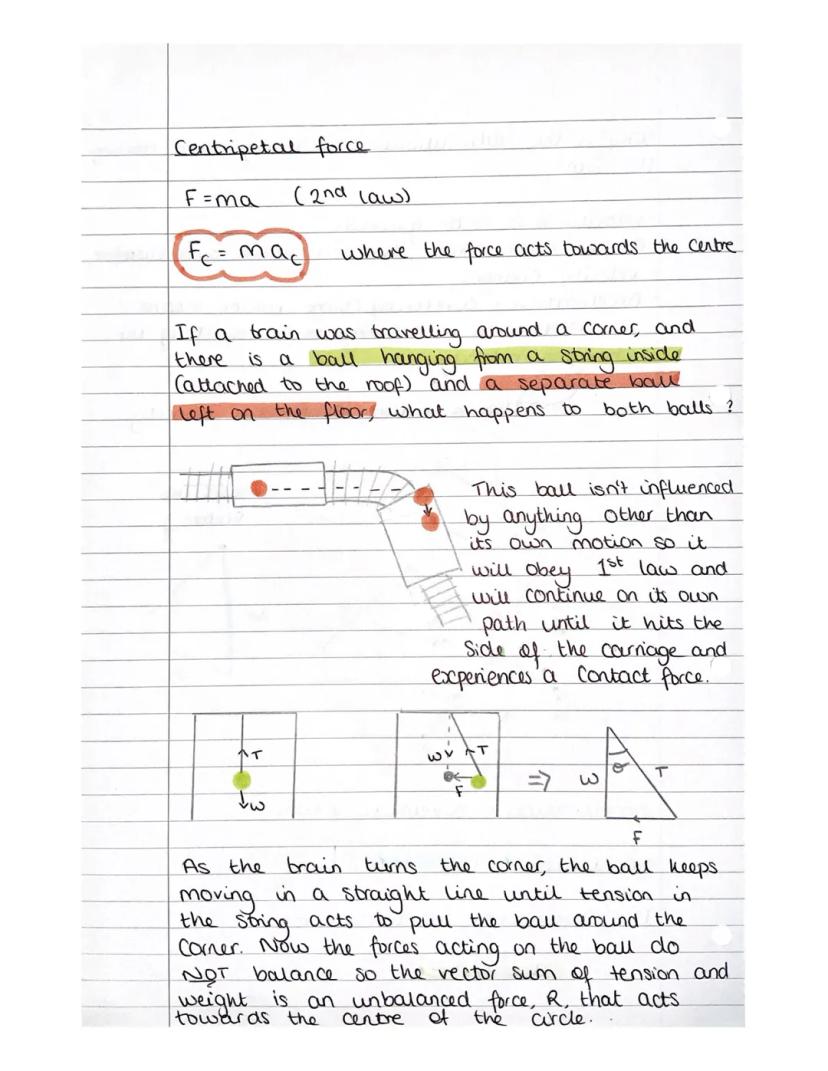 Centripetal force
F = ma (2nd law)
Fc = mac where the force acts towards the centre
If a train was travelling around a corner, and
there is a ball hanging from a string inside
(attached to the roof) and a separate ball
left on the floor, what happens to both balls?
This ball isn't influenced
by anything other than
its own motion so it
will obey 1st law and
will continue on its own
path until it hits the
side of the carriage and
experiences a contact force.
T
W
W T
F
=> W θ T
F
As the train turns the corner, the ball keeps
moving in a straight line until tension in
the string acts to pull the ball around the
corner. Now the forces acting on the ball do
NOT balance so the vector sum of tension and
weight is an unbalanced force, R, that acts
towards the centre of the circle.